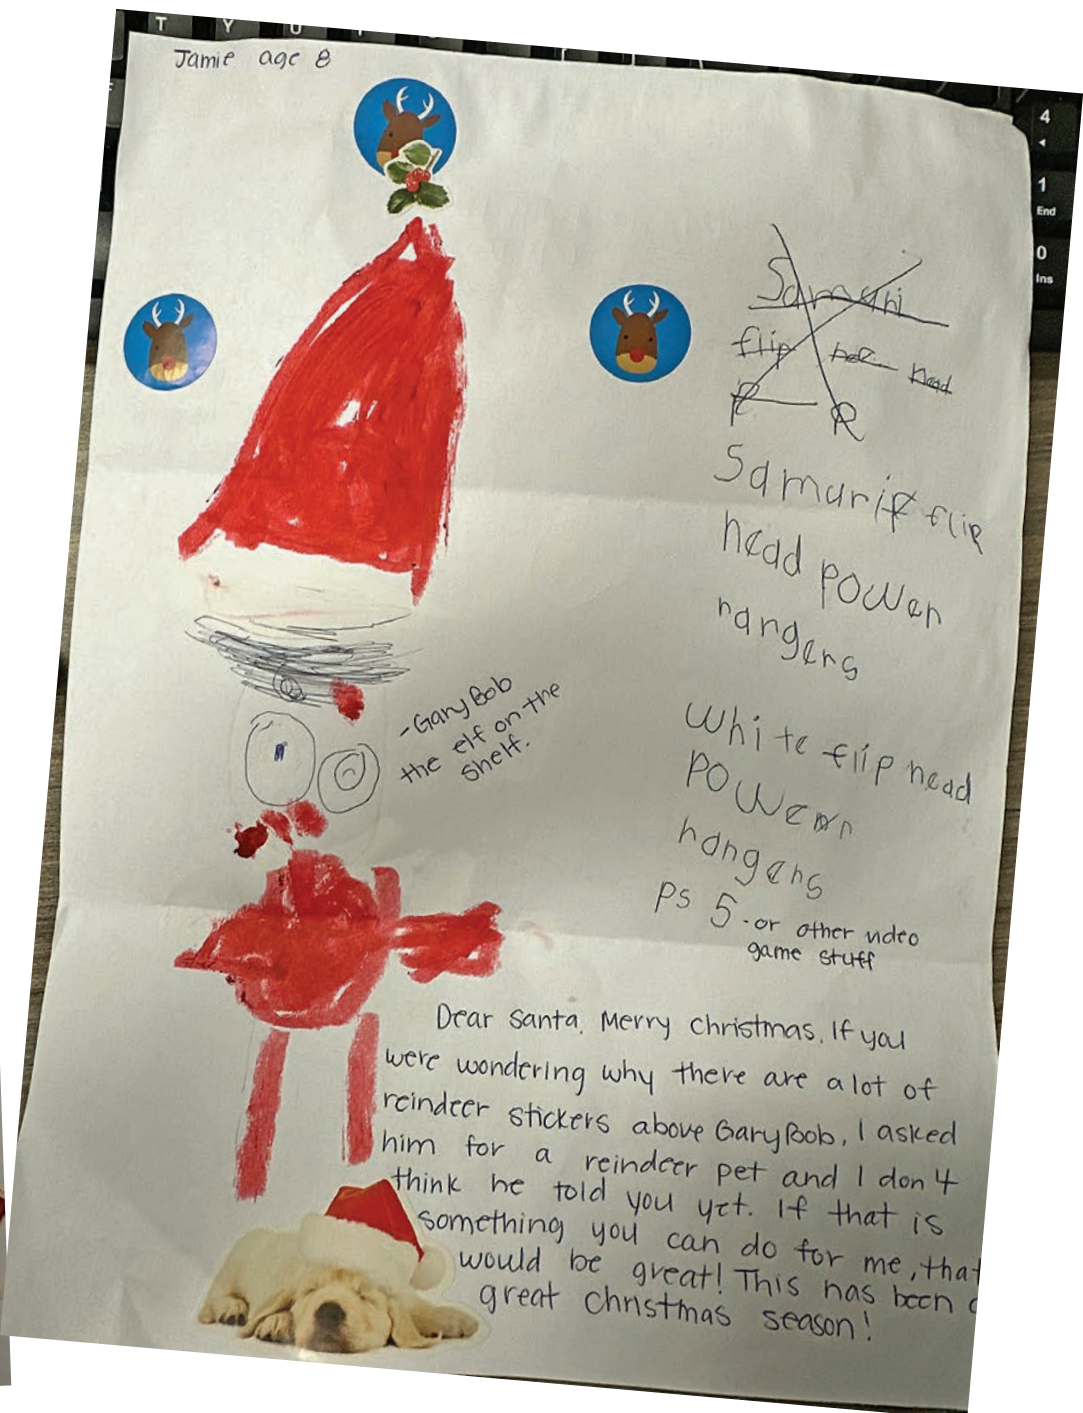 T Y U
4
1
End
0
Ins
Jamie age 8
Samuri
flip hea head
P R
Samurif flip
head power
rangers
-GaryBob
the elf on the
shelf.
White flip head
power
rangers
Ps 5-or other video
game stuff
Dear Santa, Merry Christmas. If you
were wondering why there are a lot of
reindeer stickers above GaryBob, I asked
him for a reindeer pet and I don4
think he told you yet. If that is
something you can do for me, that
would be great! This has been a
great Christmas season!